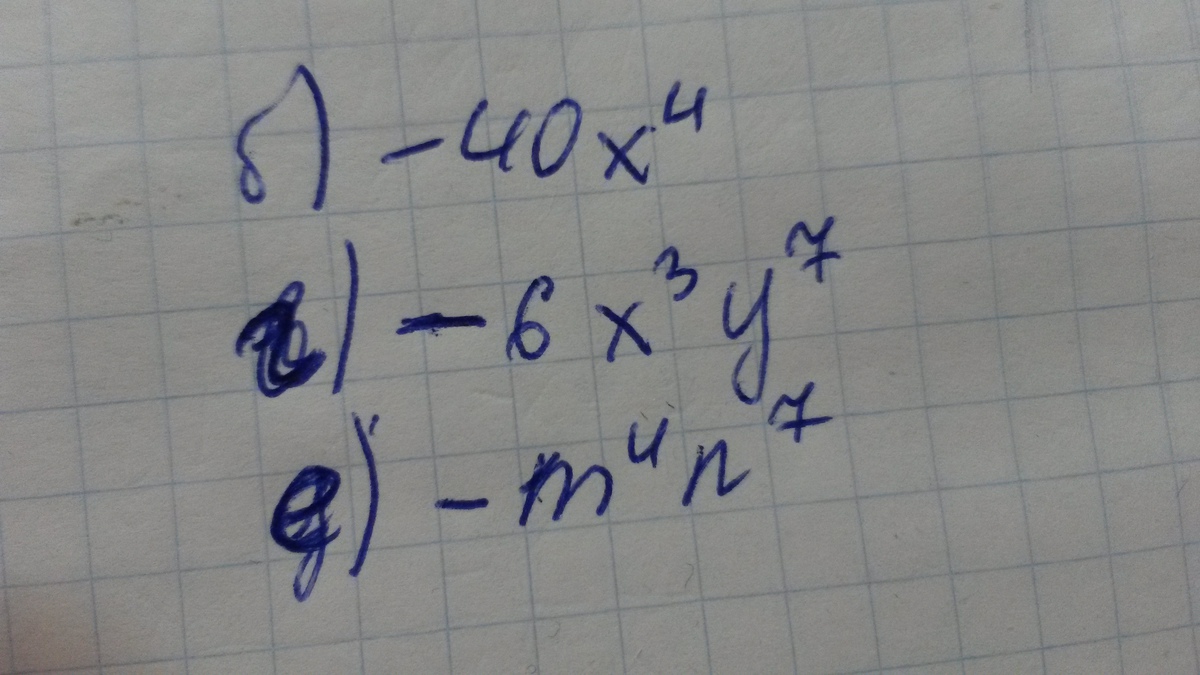 б) -40x⁴
г) -6x³y⁷
е) -m⁴n⁷